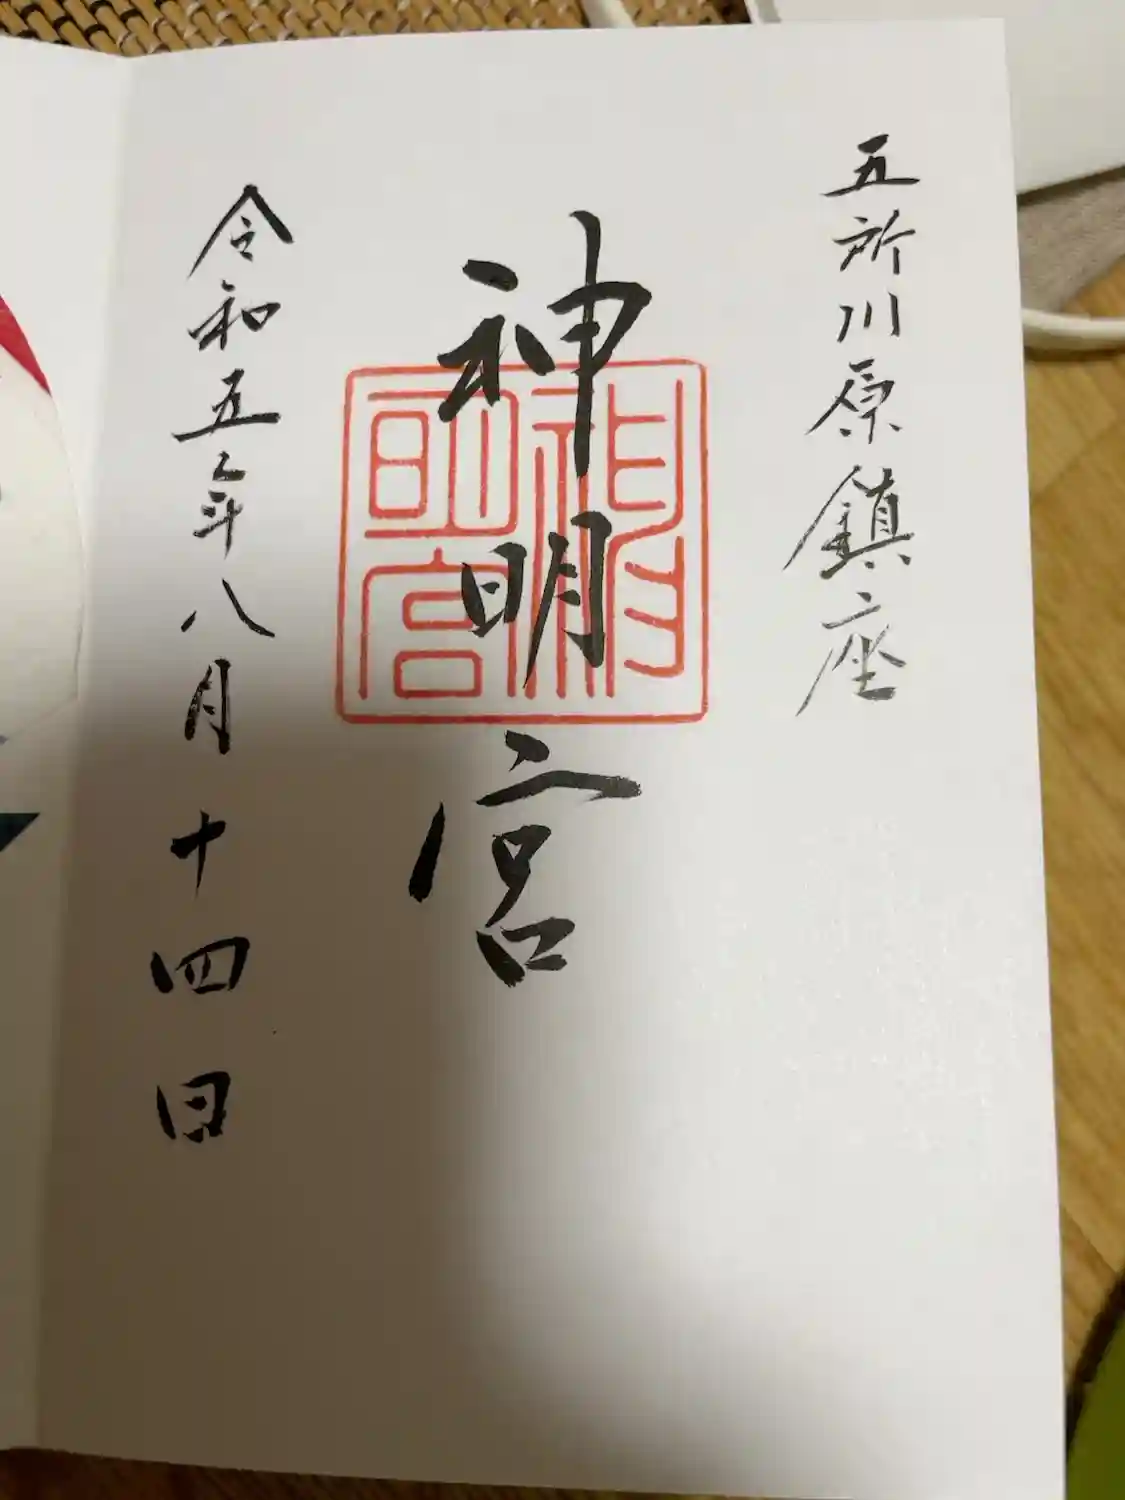 五所川原鎮座
神明宮
神明宮
令和五年八月十四日